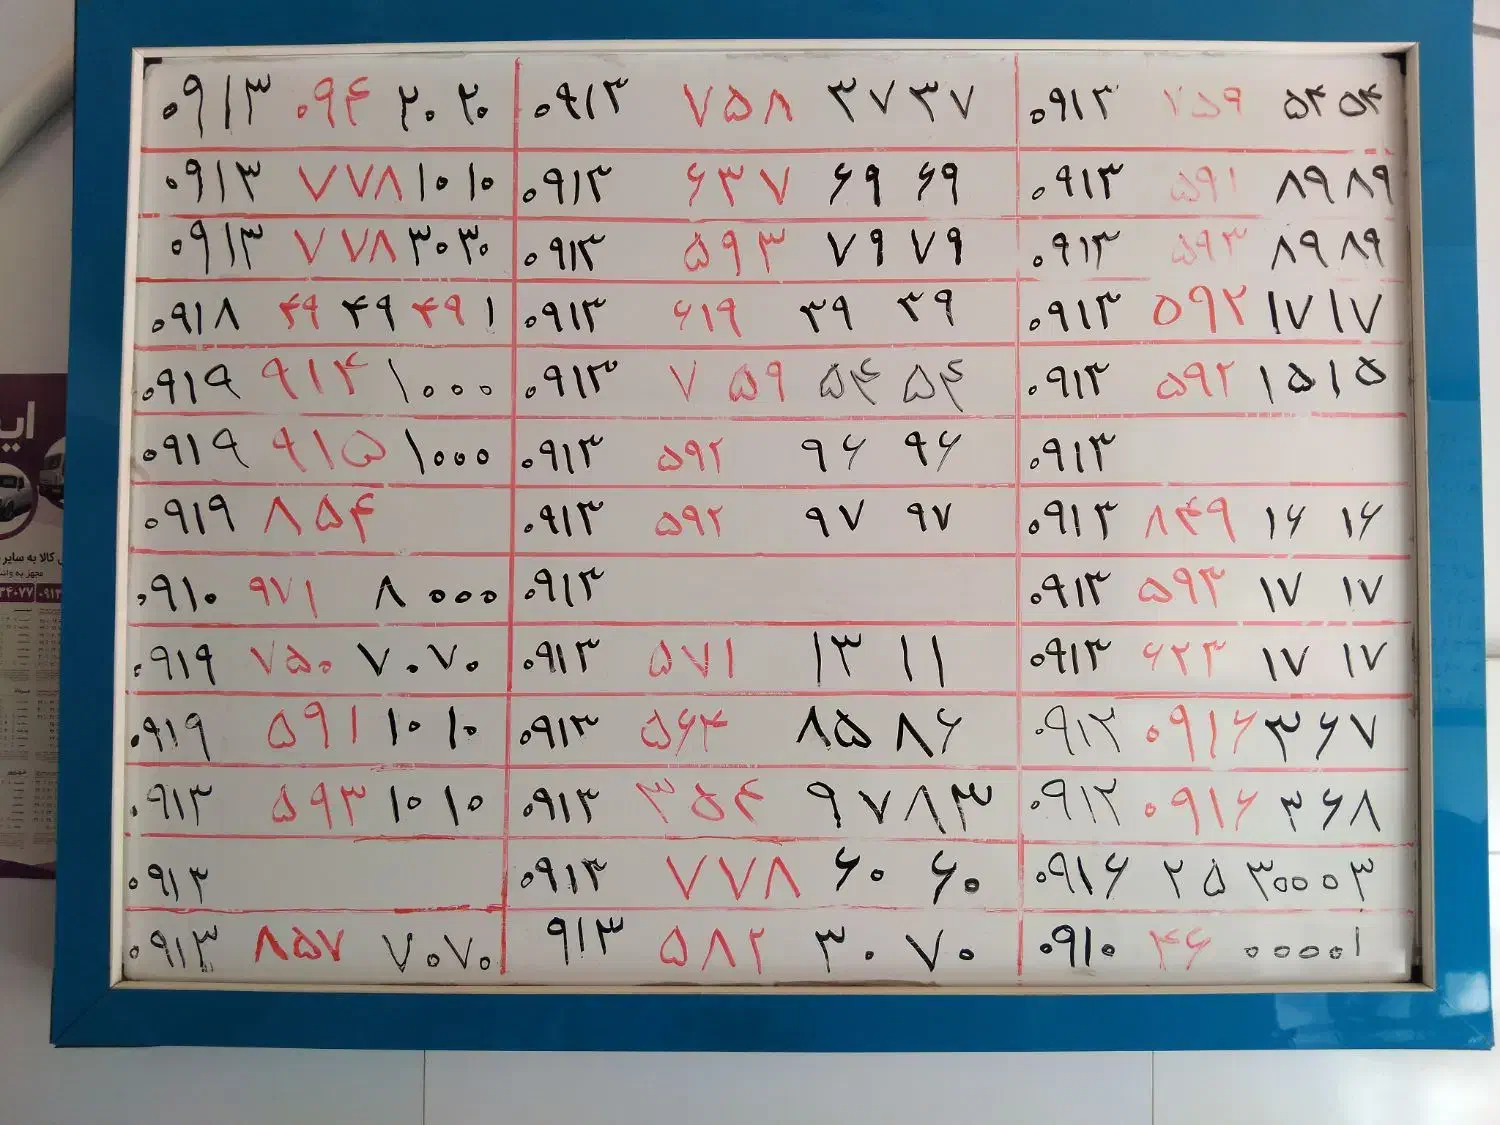 ۰۹۱۳ ۰۹۴ ۲۰۲۰ ۰۹۱۳ ۷۵۸ ۳۷۳۷ ۰۹۱۳ ۷۵۹ ۵۴۵۴
۰۹۱۳ ۷۷۸ ۱۰۱۰ ۰۹۱۳ ۶۳۷ ۶۹۶۹ ۰۹۱۳ ۵۹۱ ۸۹۸۹
۰۹۱۳ ۷۷۸ ۳۰۳۰ ۰۹۱۳ ۵۹۳ ۷۹۷۹ ۰۹۱۳ ۵۹۳ ۸۹۸۹
۰۹۱۸ ۴۹ ۴۹ ۴۹ ۱ ۰۹۱۳ ۶۱۹ ۳۹ ۳۹ ۰۹۱۳ ۵۹۲ ۱۷۱۷
۰۹۱۹ ۹۱۴ ۱۰۰۰ ۰۹۱۳ ۷۵۹ ۵۴۵۴ ۰۹۱۳ ۵۹۲ ۱۵۱۵
۰۹۱۹ ۹۱۵ ۱۰۰۰ ۰۹۱۳ ۵۹۲ ۹۶ ۹۶ ۰۹۱۳
۰۹۱۹ ۸۵۴ ۰۹۱۳ ۵۹۲ ۹۷ ۹۷ ۰۹۱۳ ۸۴۹ ۱۶ ۱۶
۰۹۱۰ ۹۷۱ ۸۰۰۰ ۰۹۱۳ ۰۹۱۳ ۵۹۳ ۱۷ ۱۷
۰۹۱۹ ۷۵۰ ۷۰۷۰ ۰۹۱۳ ۵۷۱ ۱۳ ۱۱ ۰۹۱۳ ۶۲۳ ۱۷ ۱۷
۰۹۱۹ ۵۹۱ ۱۰۱۰ ۰۹۱۳ ۵۶۴ ۸۵۸۶ ۰۹۱۲ ۰۹۱۶ ۳۶۷
۰۹۱۳ ۵۹۳ ۱۰۱۰ ۰۹۱۳ ۳۵۴ ۹۷۸۳ ۰۹۱۲ ۰۹۱۶ ۳۶۸
۰۹۱۳ ۰۹۱۳ ۷۷۸ ۶۰۶۰ ۰۹۱۶ ۲۵ ۳۰۰۰۳
۰۹۱۳ ۸۵۷ ۷۰۷۰ ۹۱۳ ۵۸۲ ۳۰۷۰ ۰۹۱۰ ۴۶ ۰۰۰۰۱
کالا به سایر
مجهز به